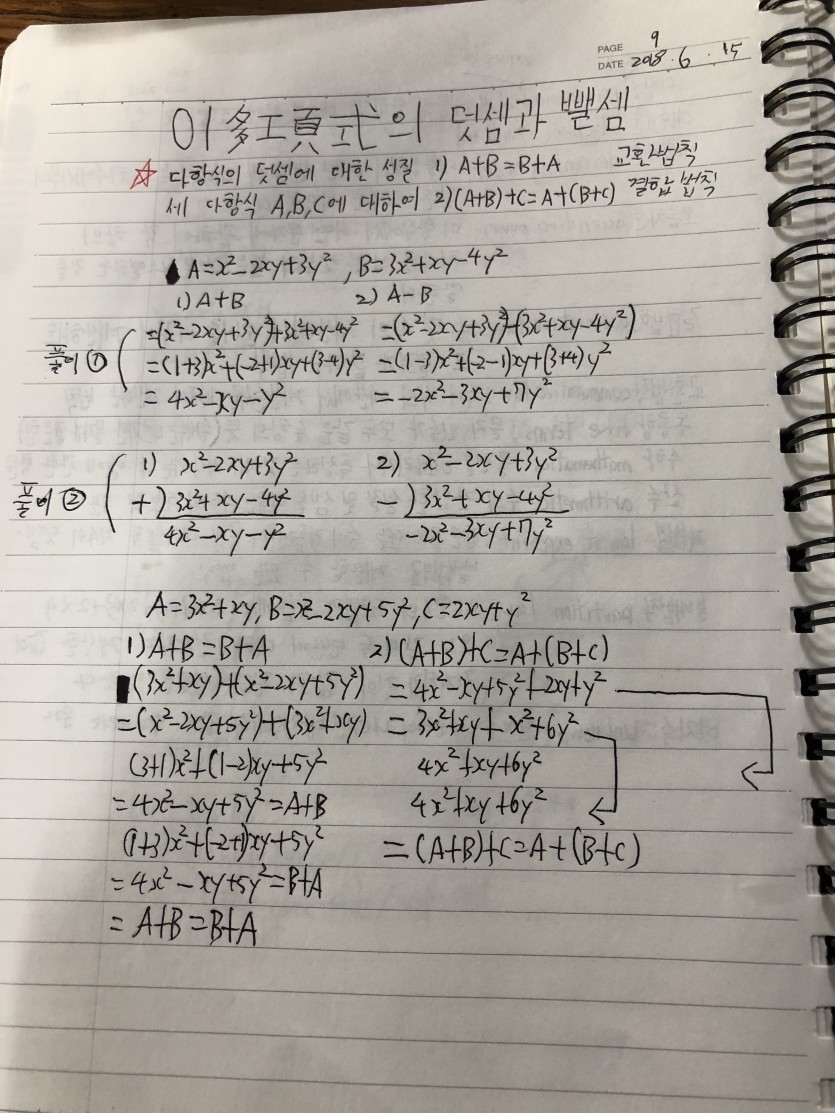 PAGE 9
DATE 2018 . 6 . 15
01 多工頁式의 덧셈과 뺄셈
☆ 다항식의 덧셈에 대한 성질 1) A+B=B+A 교환법칙
세 다항식 A,B,C에 대하여 2)(A+B)+C=A+(B+C) 결합법칙
A=x²-2xy+3y², B=3x²+xy-4y²
1) A+B 2) A-B
=(x²-2xy+3y²)+3x²+xy-4y² =(x²-2xy+3y²)-(3x²+xy-4y²)
풀이 ① =(1+3)x²+(-2+1)xy+(3-4)y² =(1-3)x²+(-2-1)xy+(3+4)y²
=4x²-xy-y² =-2x²-3xy+7y²
1) x²-2xy+3y² 2) x²-2xy+3y²
풀이 ② +) 3x²+xy-4y² -) 3x²+xy-4y²
4x²-xy-y² -2x²-3xy+7y²
A=3x²+xy, B=x²-2xy+5y², C=2xy+y²
1) A+B=B+A 2) (A+B)+C=A+(B+C)
(3x²+xy)+(x²-2xy+5y²) =4x²-xy+5y²+2xy+y²
=(x²-2xy+5y²)+(3x²+xy) =3x²+xy+x²+6y²
(3+1)x²+(1-2)xy+5y² 4x²+xy+6y²
=4x²-xy+5y²=A+B 4x²+xy+6y²
(1+3)x²+(-2+1)xy+5y² =(A+B)+C=A+(B+C)
=4x²-xy+5y²=B+A
=A+B=B+A